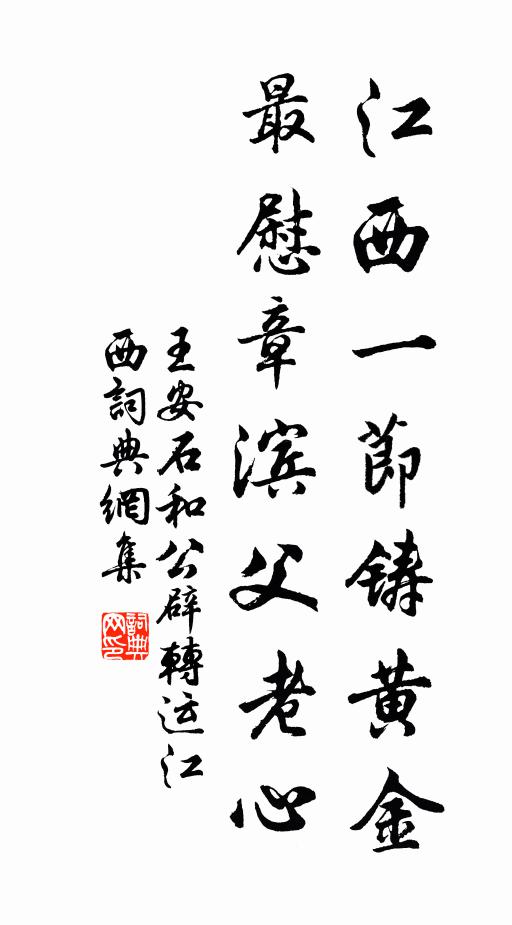 江西一節铸黄金
最慰章滨父老心
王安石和公辟轉运江
西詞典網集
詞典网印